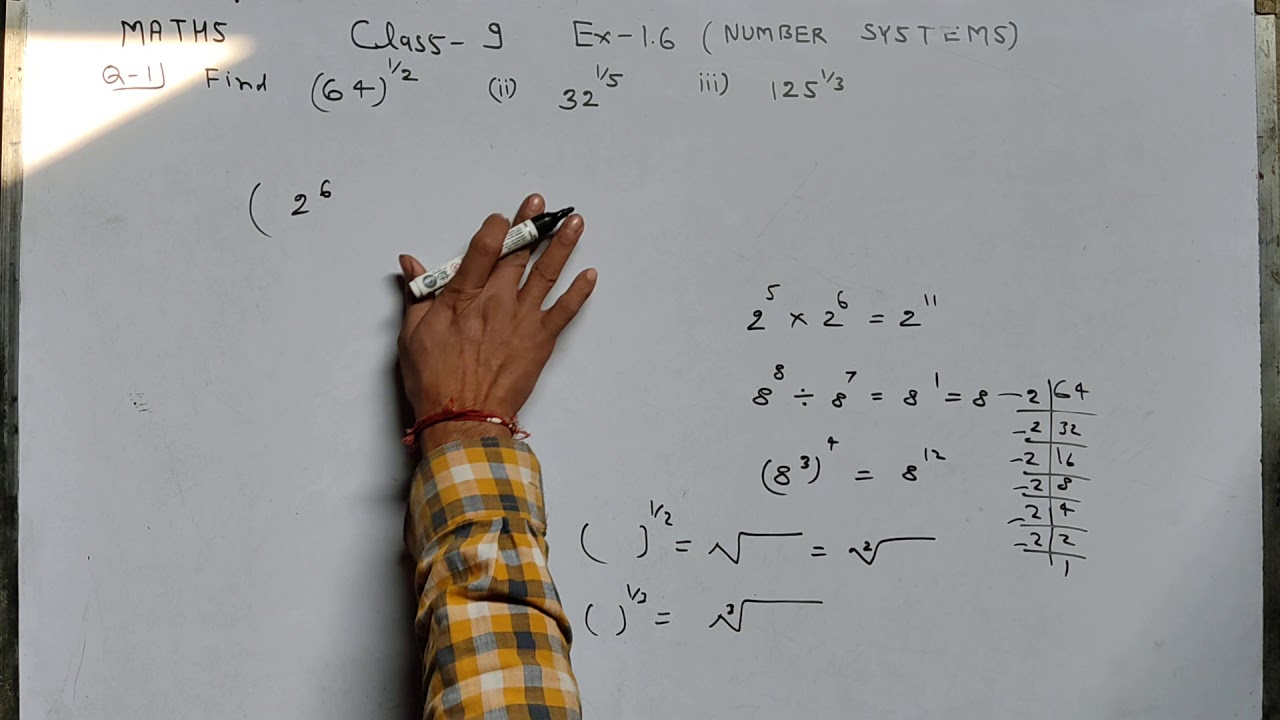 MATHS Class-9 Ex-1.6 (NUMBER SYSTEMS)
Q-1) Find (64)^1/2 (ii) 32^1/5 iii) 125^1/3
( 2^6
2^5 × 2^6 = 2^11
8^8 ÷ 8^7 = 8^1 = 8
(8^3)^4 = 8^12
( )^1/2 = √ = ²√
( )^1/3 = ³√
-2|64
-2|32
-2|16
-2|8
-2|4
-2|2
1